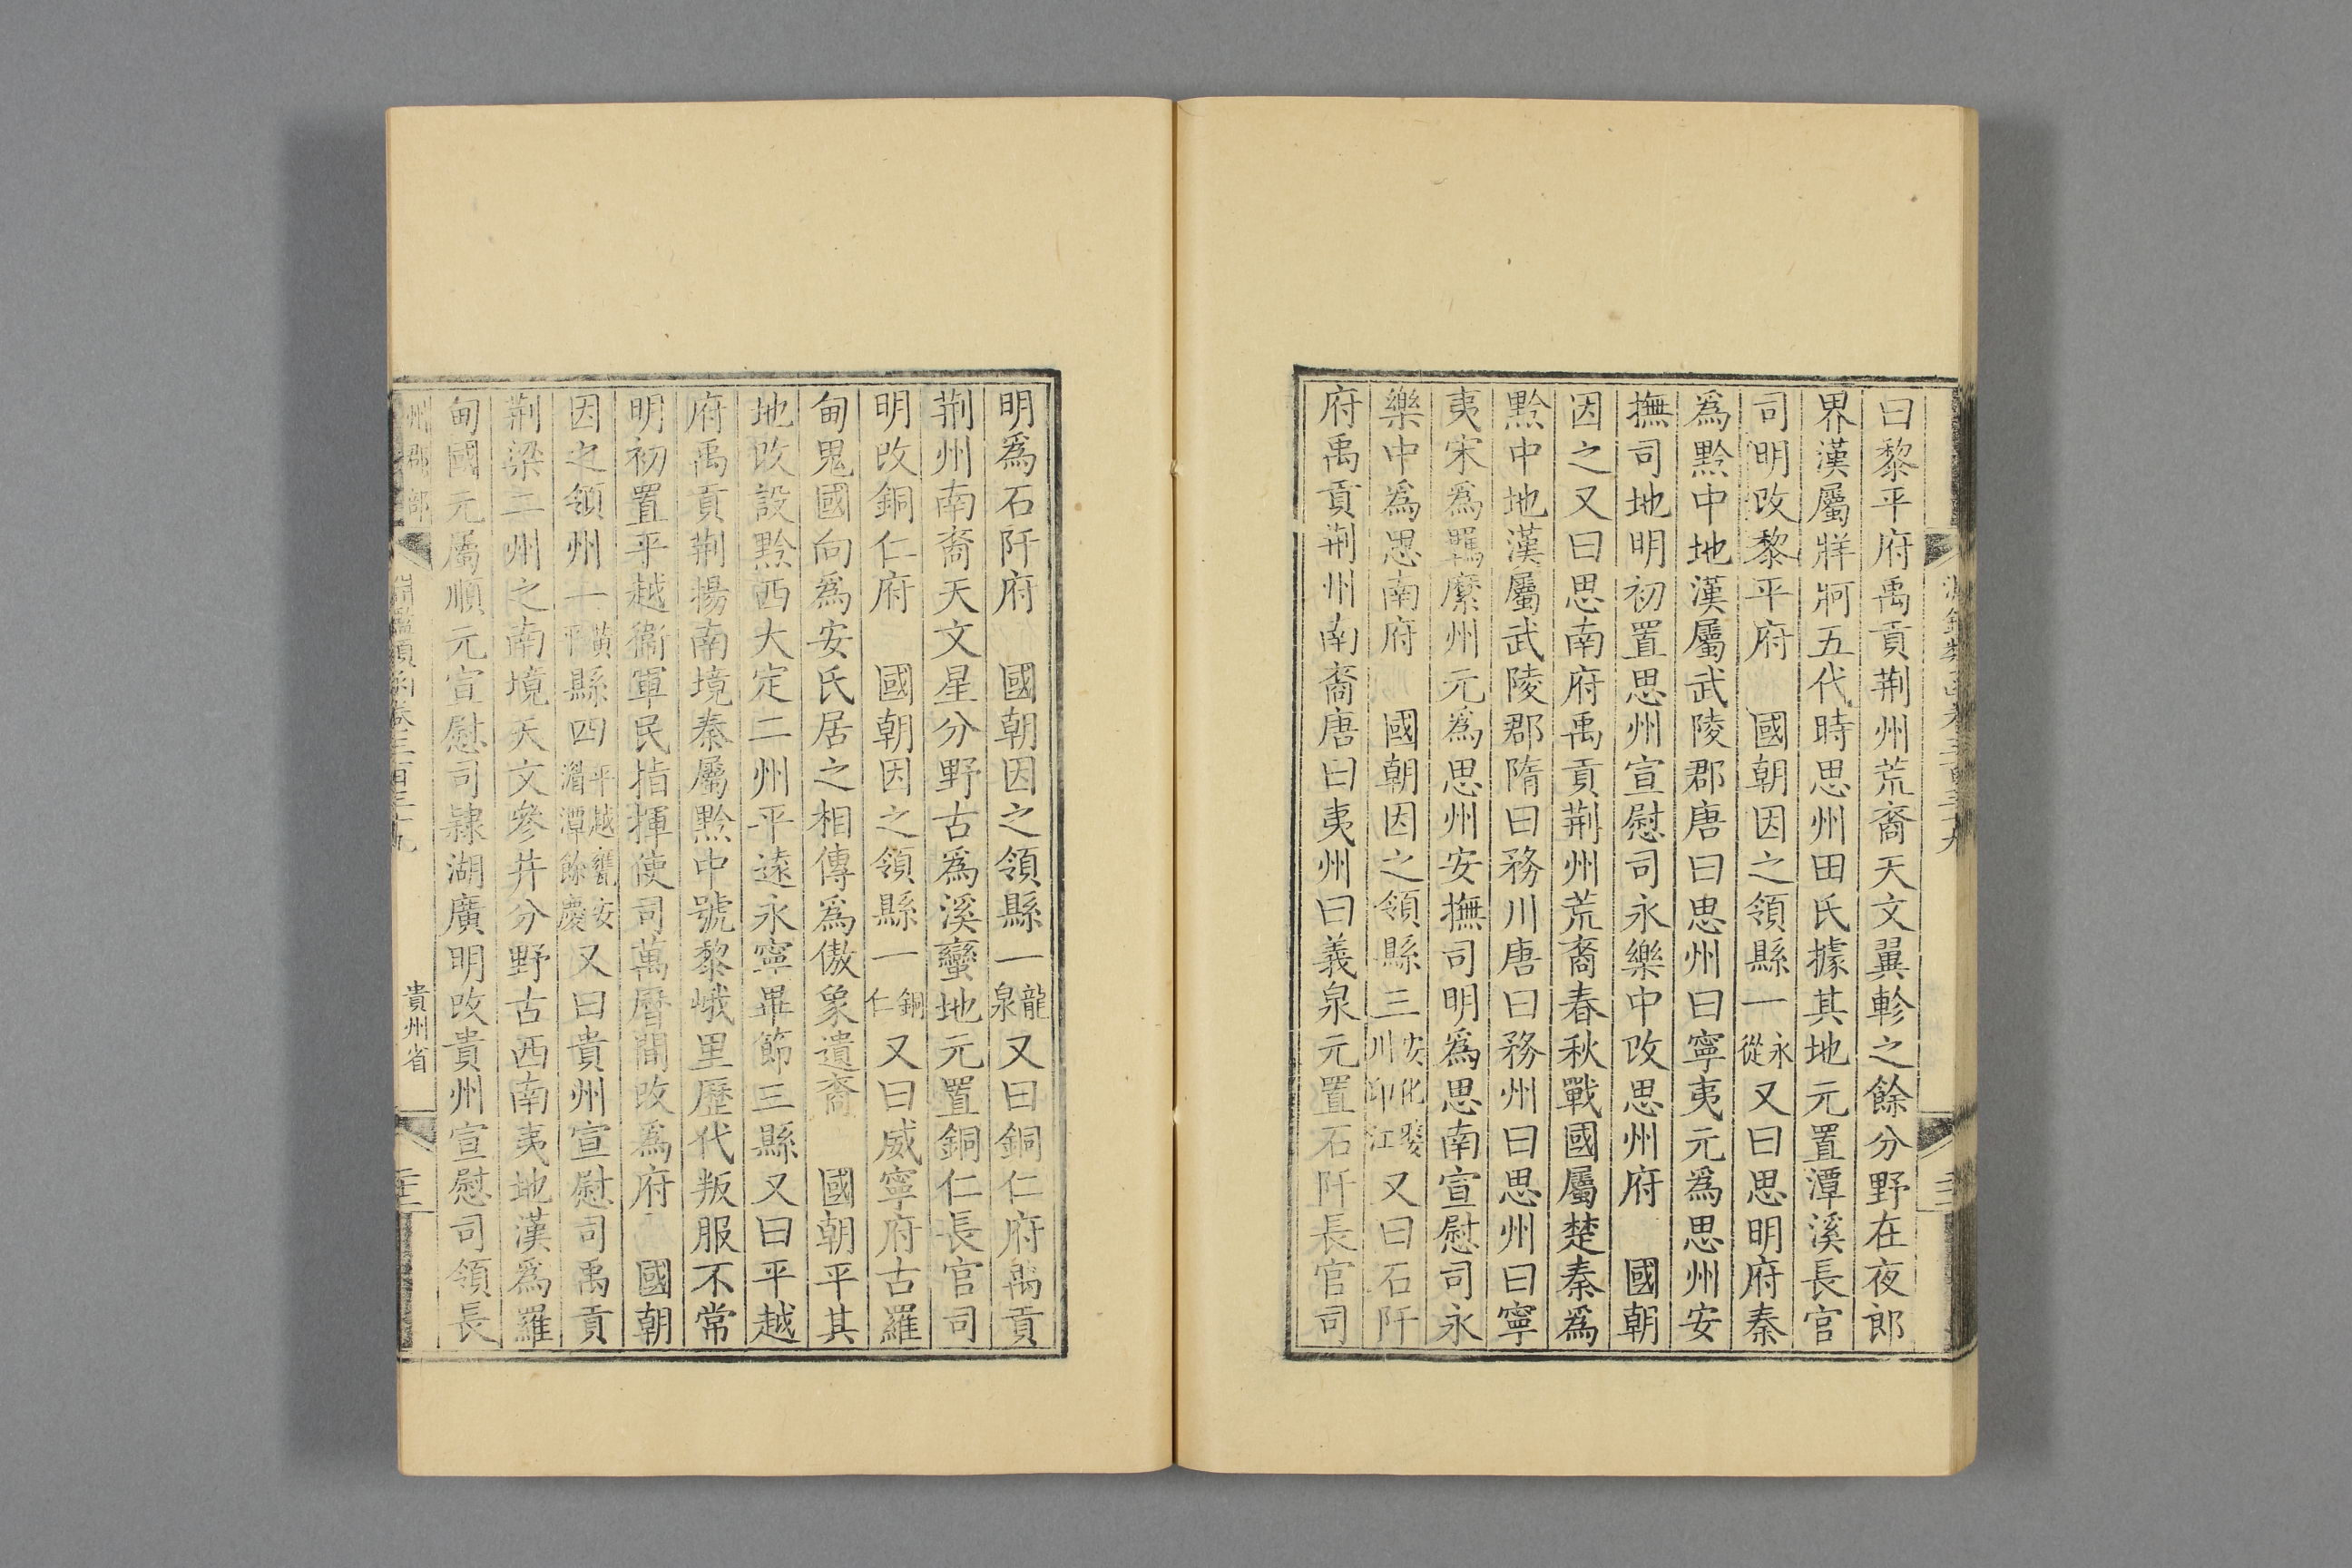 曰黎平府禹貢荆州荒裔天文翼軫之餘分野在夜郎
界漢屬牂牁五代時思州田氏據其地元置潭溪長官
司明改黎平府　國朝因之領縣一永從又曰思明府秦
爲黔中地漢屬武陵郡唐曰思州曰寧夷元爲思州安
撫司地明初置思州宣慰司永樂中改思州府　國朝
因之又曰思南府禹貢荆州荒裔春秋戰國屬楚秦爲
黔中地漢屬武陵郡隋曰務川唐曰務州曰思州曰寧
夷宋爲羈縻州元爲思州安撫司明爲思南宣慰司永
樂中爲思南府　國朝因之領縣三安化婺川印江又曰石阡
府禹貢荆州南裔唐曰夷州曰義泉元置石阡長官司
明爲石阡府　國朝因之領縣一龍泉又曰銅仁府禹貢
荆州南裔天文星分野古爲溪蠻地元置銅仁長官司
明改銅仁府　國朝因之領縣一銅仁又曰威寧府古羅
甸鬼國向爲安氏居之相傳爲傲象遺裔　國朝平其
地改設黔西大定二州平遠永寧畢節三縣又曰平越
府禹貢荆揚南境秦屬黔中號黎峨里歷代叛服不常
明初置平越衞軍民指揮使司萬曆間改爲府　國朝
因之領州一黃平縣四平越甕安湄潭餘慶又曰貴州宣慰司禹貢
荆梁二州之南境天文參井分野古西南夷地漢爲羅
甸國元屬順元宣慰司隸湖廣明改貴州宣慰司領長
州郡部　淵鑑類函卷三百三十九　貴州省